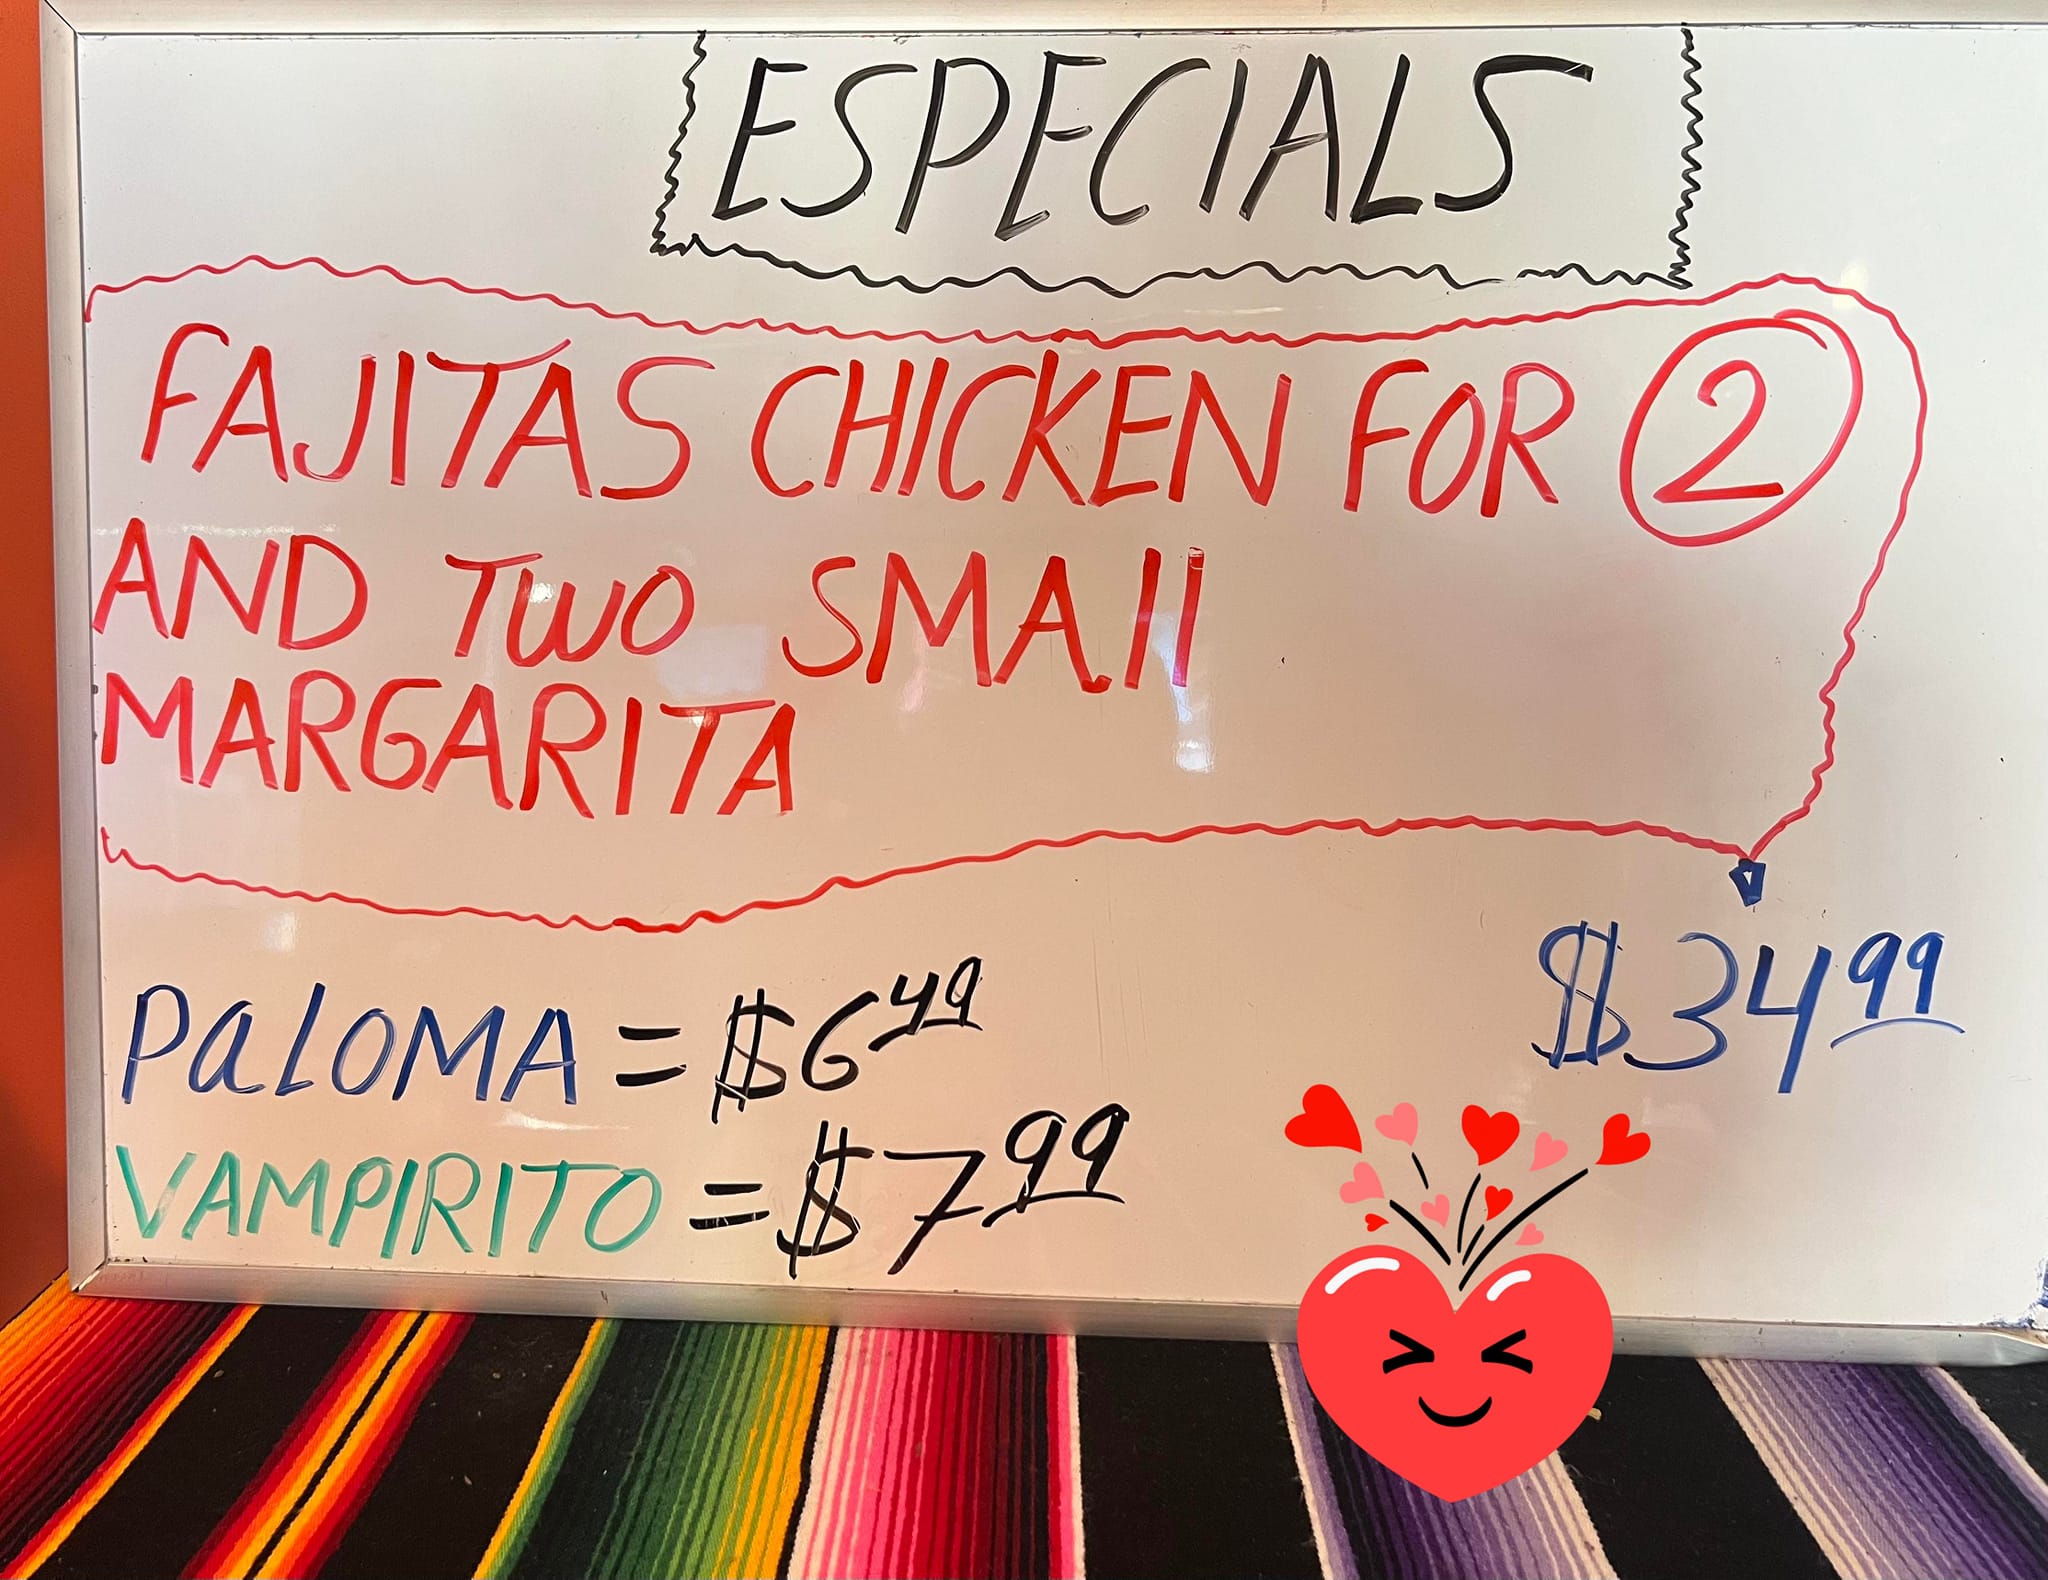 ESPECIALS
FAJITAS CHICKEN FOR 2
AND TWO SMAll
MARGARITA
$34.99
PaLOMA = $6.49
VAMPIRITO = $7.99